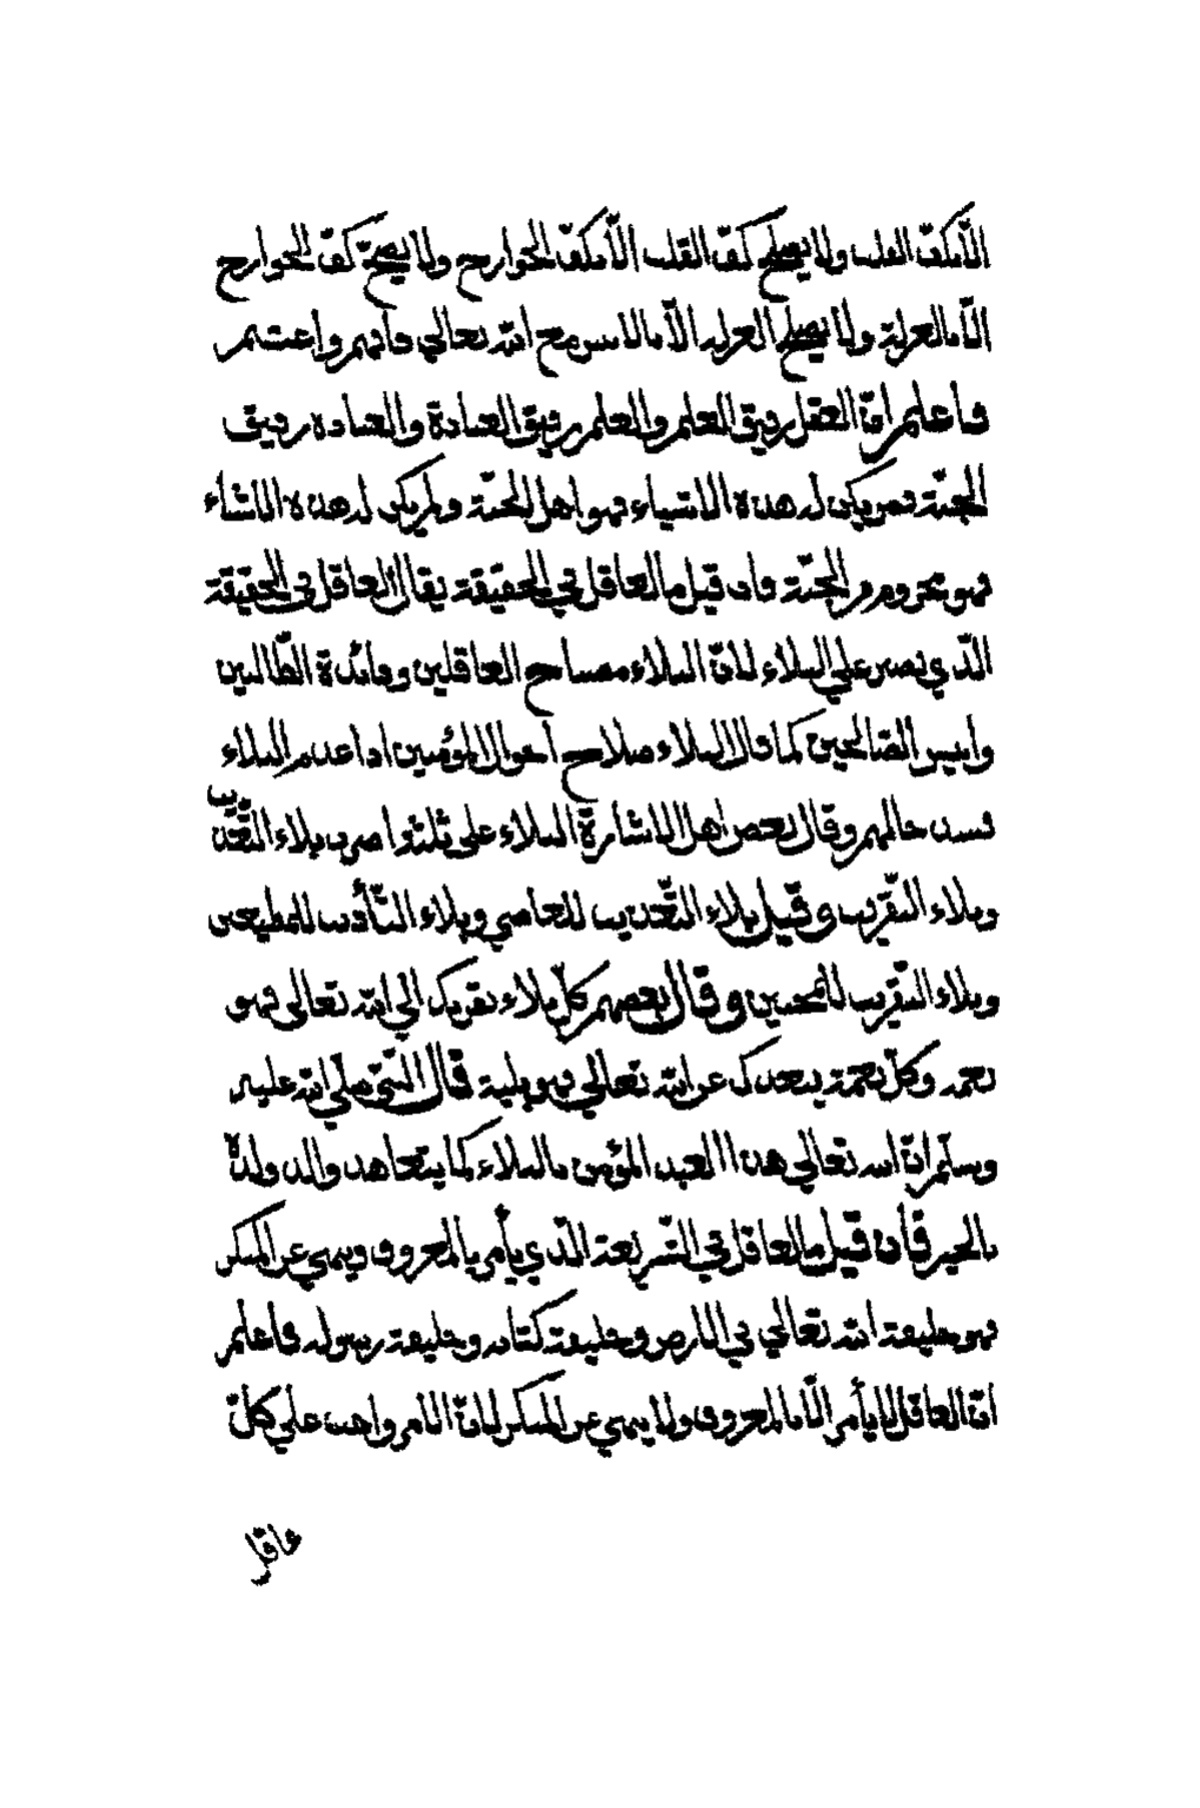 الّا بكفّ القلب ولا يصحّ كفّ القلب الّا بكفّ الجوارح ولا يصحّ كفّ الجوارح
الّا بالعزلة ولا يصحّ العزلة الّا بالانس مع الله تعالي فافهم واغتنم
فاعلم انّ العقل رفيق العلم والعلم رفيق العبادة والعبادة رفيق
الجنّة فمن يكن له هذه الاشياء فهو اهل الجنّة ولم يكن له هذه الاشياء
فهو محروم من الجنّة فان قيل ما العاقل في الحقيقة يقال العاقل في الحقيقة
الّذي يصبر علي البلاء لانّ البلاء مصباح العاقلين وفائدة الطّالبين
وانيس الصّالحين كما قال البلاء صلاح احوال المؤمنين اذا عدم البلاء
فسد حالهم وقال بعض اهل الاشارة البلاء على ثلثة اضرب بلاء التّعذيب
وبلاء التّقريب وقيل بلاء التّعذيب للعاصي وبلاء التّأديب للمطيعين
وبلاء التّقريب للمحبين وقال بعضهم كلّ بلاء يقربك الي الله تعالى فهو
نعمة وكلّ نعمة يبعدك عن الله تعالي فهو بلية قال النّبيّ صلّي الله عليه
وسلّم انّ الله تعالي هذا العبد المؤمن بالبلاء كما يتعاهد والد ولده
بالخير فأن قيل ما العاقل في الشّريعة الّذي يأمر بالمعروف وينهي عن المنكر
فهو خليفة الله تعالي في الارض وخليفة كتابه وخليفة رسوله فاعلم
انّ العاقل لا يأمر الّا بالمعروف ولا ينهي عن المنكر لانّ الامر واجب علي كلّ
عاقل